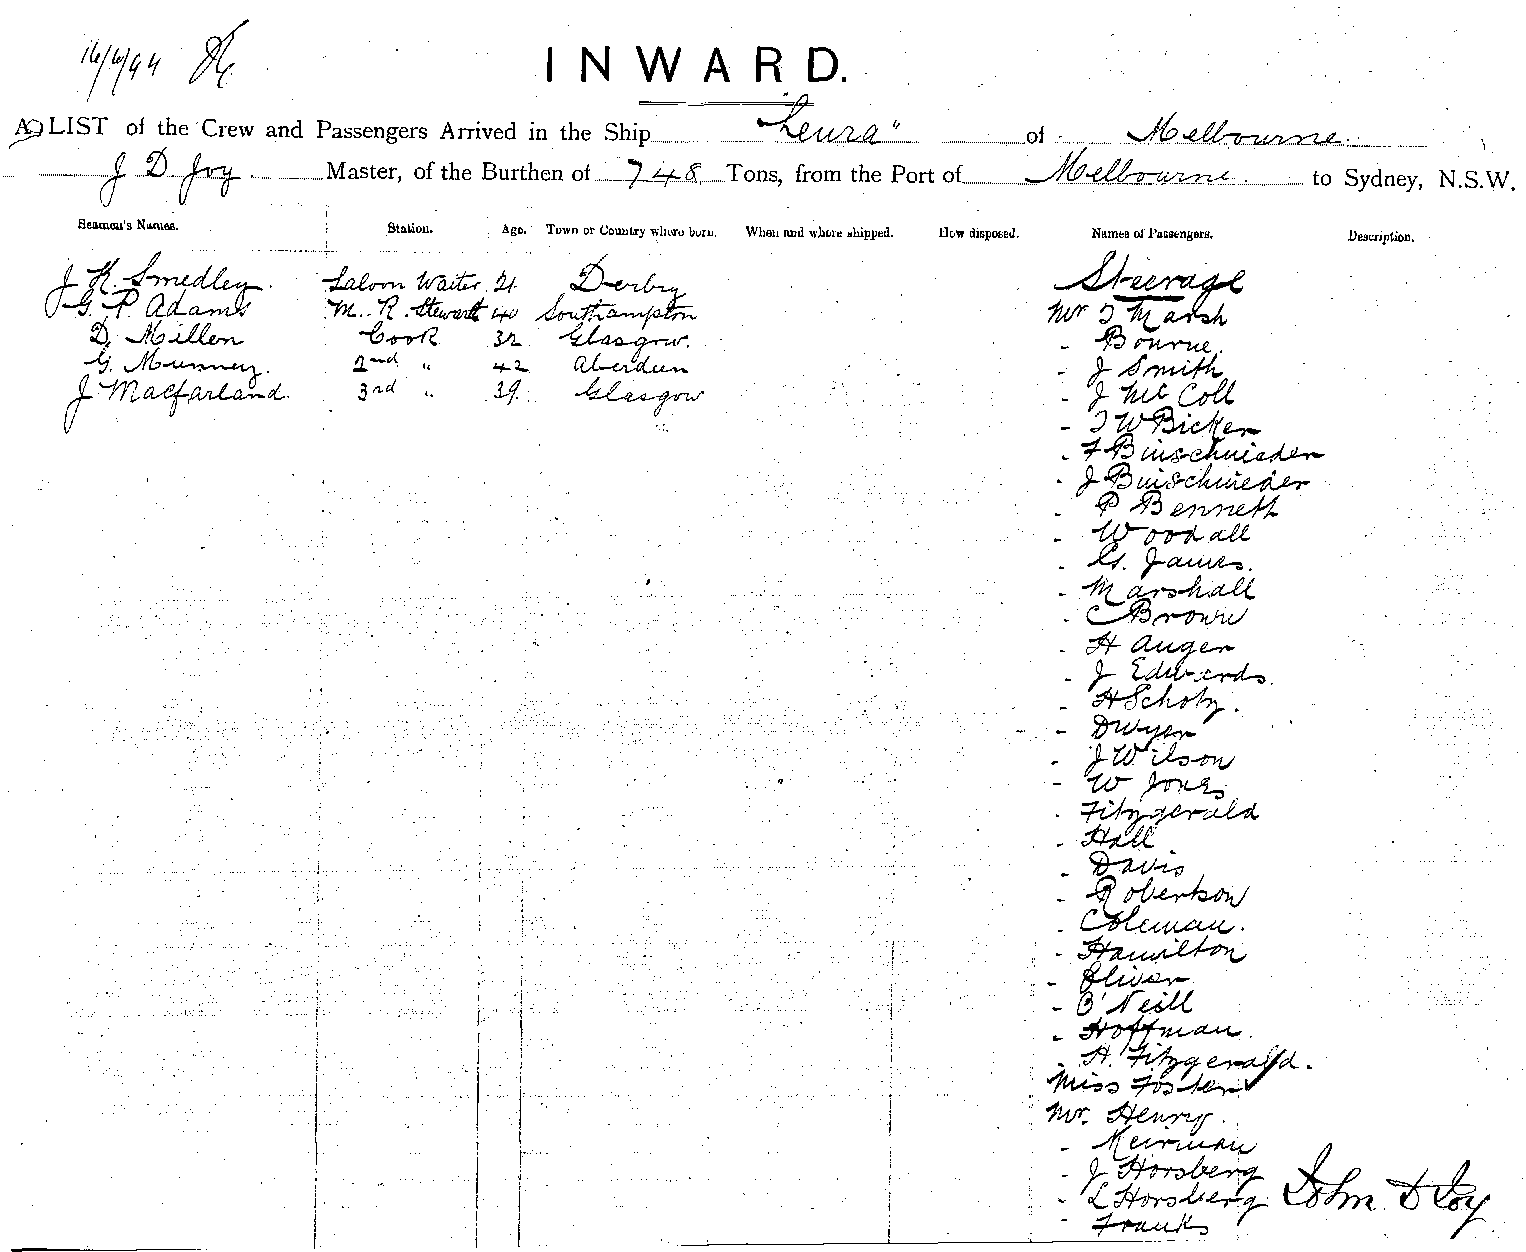 16/4/94
INWARD.
A LIST of the Crew and Passengers Arrived in the Ship "Leura" of Melbourne
J D Joy Master, of the Burthen of 748 Tons, from the Port of Melbourne to Sydney, N.S.W.
Seamen's Names. Station. Age. Town or Country where born. When and where shipped. How disposed. Names of Passengers. Description.
J K. Smedley. Saloon Waiter 21 Derby Steerage
G. P. Adams M. R. Steward 40 Southampton Mr T Marsh
D. Millen Cook 32 Glasgow. - Bourne.
G. Munney. 2nd " 42 Aberdeen - J Smith
J Macfarland. 3rd " 39 Glasgow - J McColl
- T W Bicker
- F Buischnieder
- J Buischnieder
- P Bennett
- Woodall
- G. James.
- Marshall
- C Brown
- H Auger
- J Edwards.
- H Scholz.
- Dwyer
- J Wilson
- W Jones
- Fitzgerald
- Hall
- Davis
- Robertson
- Coleman.
- Hamilton
- Oliver
- O'Neill
- Hoffman
- H. Fitzgerald.
Miss Foster
Mr. Henry
- Meirman
- J Horsberg
- L Horsberg John D Joy
- Franks